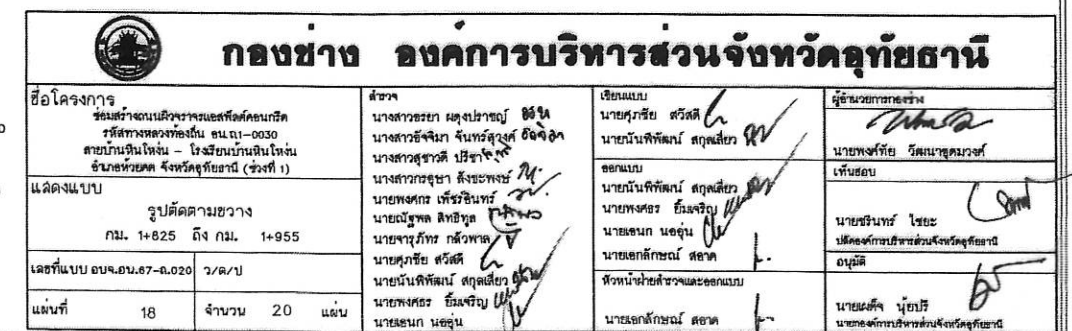 กองช่าง องค์การบริหารส่วนจังหวัดอุทัยธานี
ชื่อโครงการ
ซ่อมสร้างถนนผิวจราจรแอสฟัลต์คอนกรีต
รหัสทางหลวงท้องถิ่น อน.ถ1-0030
สายบ้านหินโหง่น – โรงเรียนบ้านหินโหง่น
อำเภอห้วยคต จังหวัดอุทัยธานี (ช่วงที่ 1)
แสดงแบบ
รูปตัดตามขวาง
กม. 1+825 ถึง กม. 1+955
เลขที่แบบ อบจ.อน.67-ถ.020 ว/ด/ป
แผ่นที่ 18 จำนวน 20 แผ่น
สำรวจ
นางสาวอรยา ผดุงปราชญ์
นางสาวอัจจิมา จันทร์สุวงศ์ อัจจิมา
นางสาวสุชาวดี ปรีชา
นางสาวกรอุษา สังขะพงษ์
นายพงศกร เพ็ชรอินทร์
นายณัฐพล สิทธิทูล
นายจารุภัทร กลัวพาล
นายศุภชัย สวัสดี
นายนันพิพัฒน์ สกุลเสี่ยว
นายพงศธร ยิ้มเจริญ
นายเอนก นออุ่น
เขียนแบบ
นายศุภชัย สวัสดี
นายนันพิพัฒน์ สกุลเสี่ยว
ออกแบบ
นายนันพิพัฒน์ สกุลเสี่ยว
นายพงศธร ยิ้มเจริญ
นายเอนก นออุ่น
นายเอกลักษณ์ สอาด
หัวหน้าฝ่ายสำรวจและออกแบบ
นายเอกลักษณ์ สอาด
ผู้อำนวยการกองช่าง
นายพงศ์ทัย วัฒนาอุดมวงศ์
เห็นชอบ
นายชรินทร์ ไชยะ
ปลัดองค์การบริหารส่วนจังหวัดอุทัยธานี
อนุมัติ
นายเผด็จ นุ้ยปรี
นายกองค์การบริหารส่วนจังหวัดอุทัยธานี